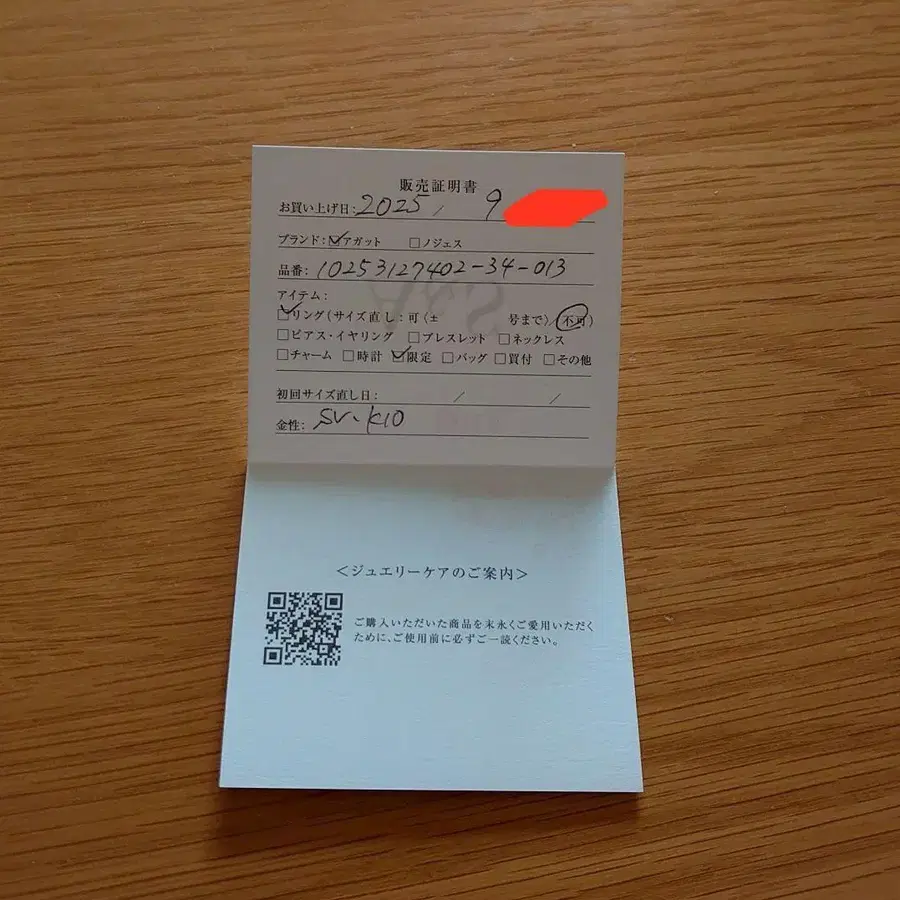 販売証明書
お買い上げ日: 2025 / 9
ブランド: ☑アガット □ノジェス
品番: 10253127402-34-013
アイテム:
☑リング(サイズ直し: 可(± 号まで)/不可)
□ピアス・イヤリング □ブレスレット □ネックレス
□チャーム □時計 ☑限定 □バッグ □買付 □その他
初回サイズ直し日: / /
金性: SV、K10
<ジュエリーケアのご案内>
ご購入いただいた商品を末永くご愛用いただく
ために、ご使用前に必ずご一読ください。